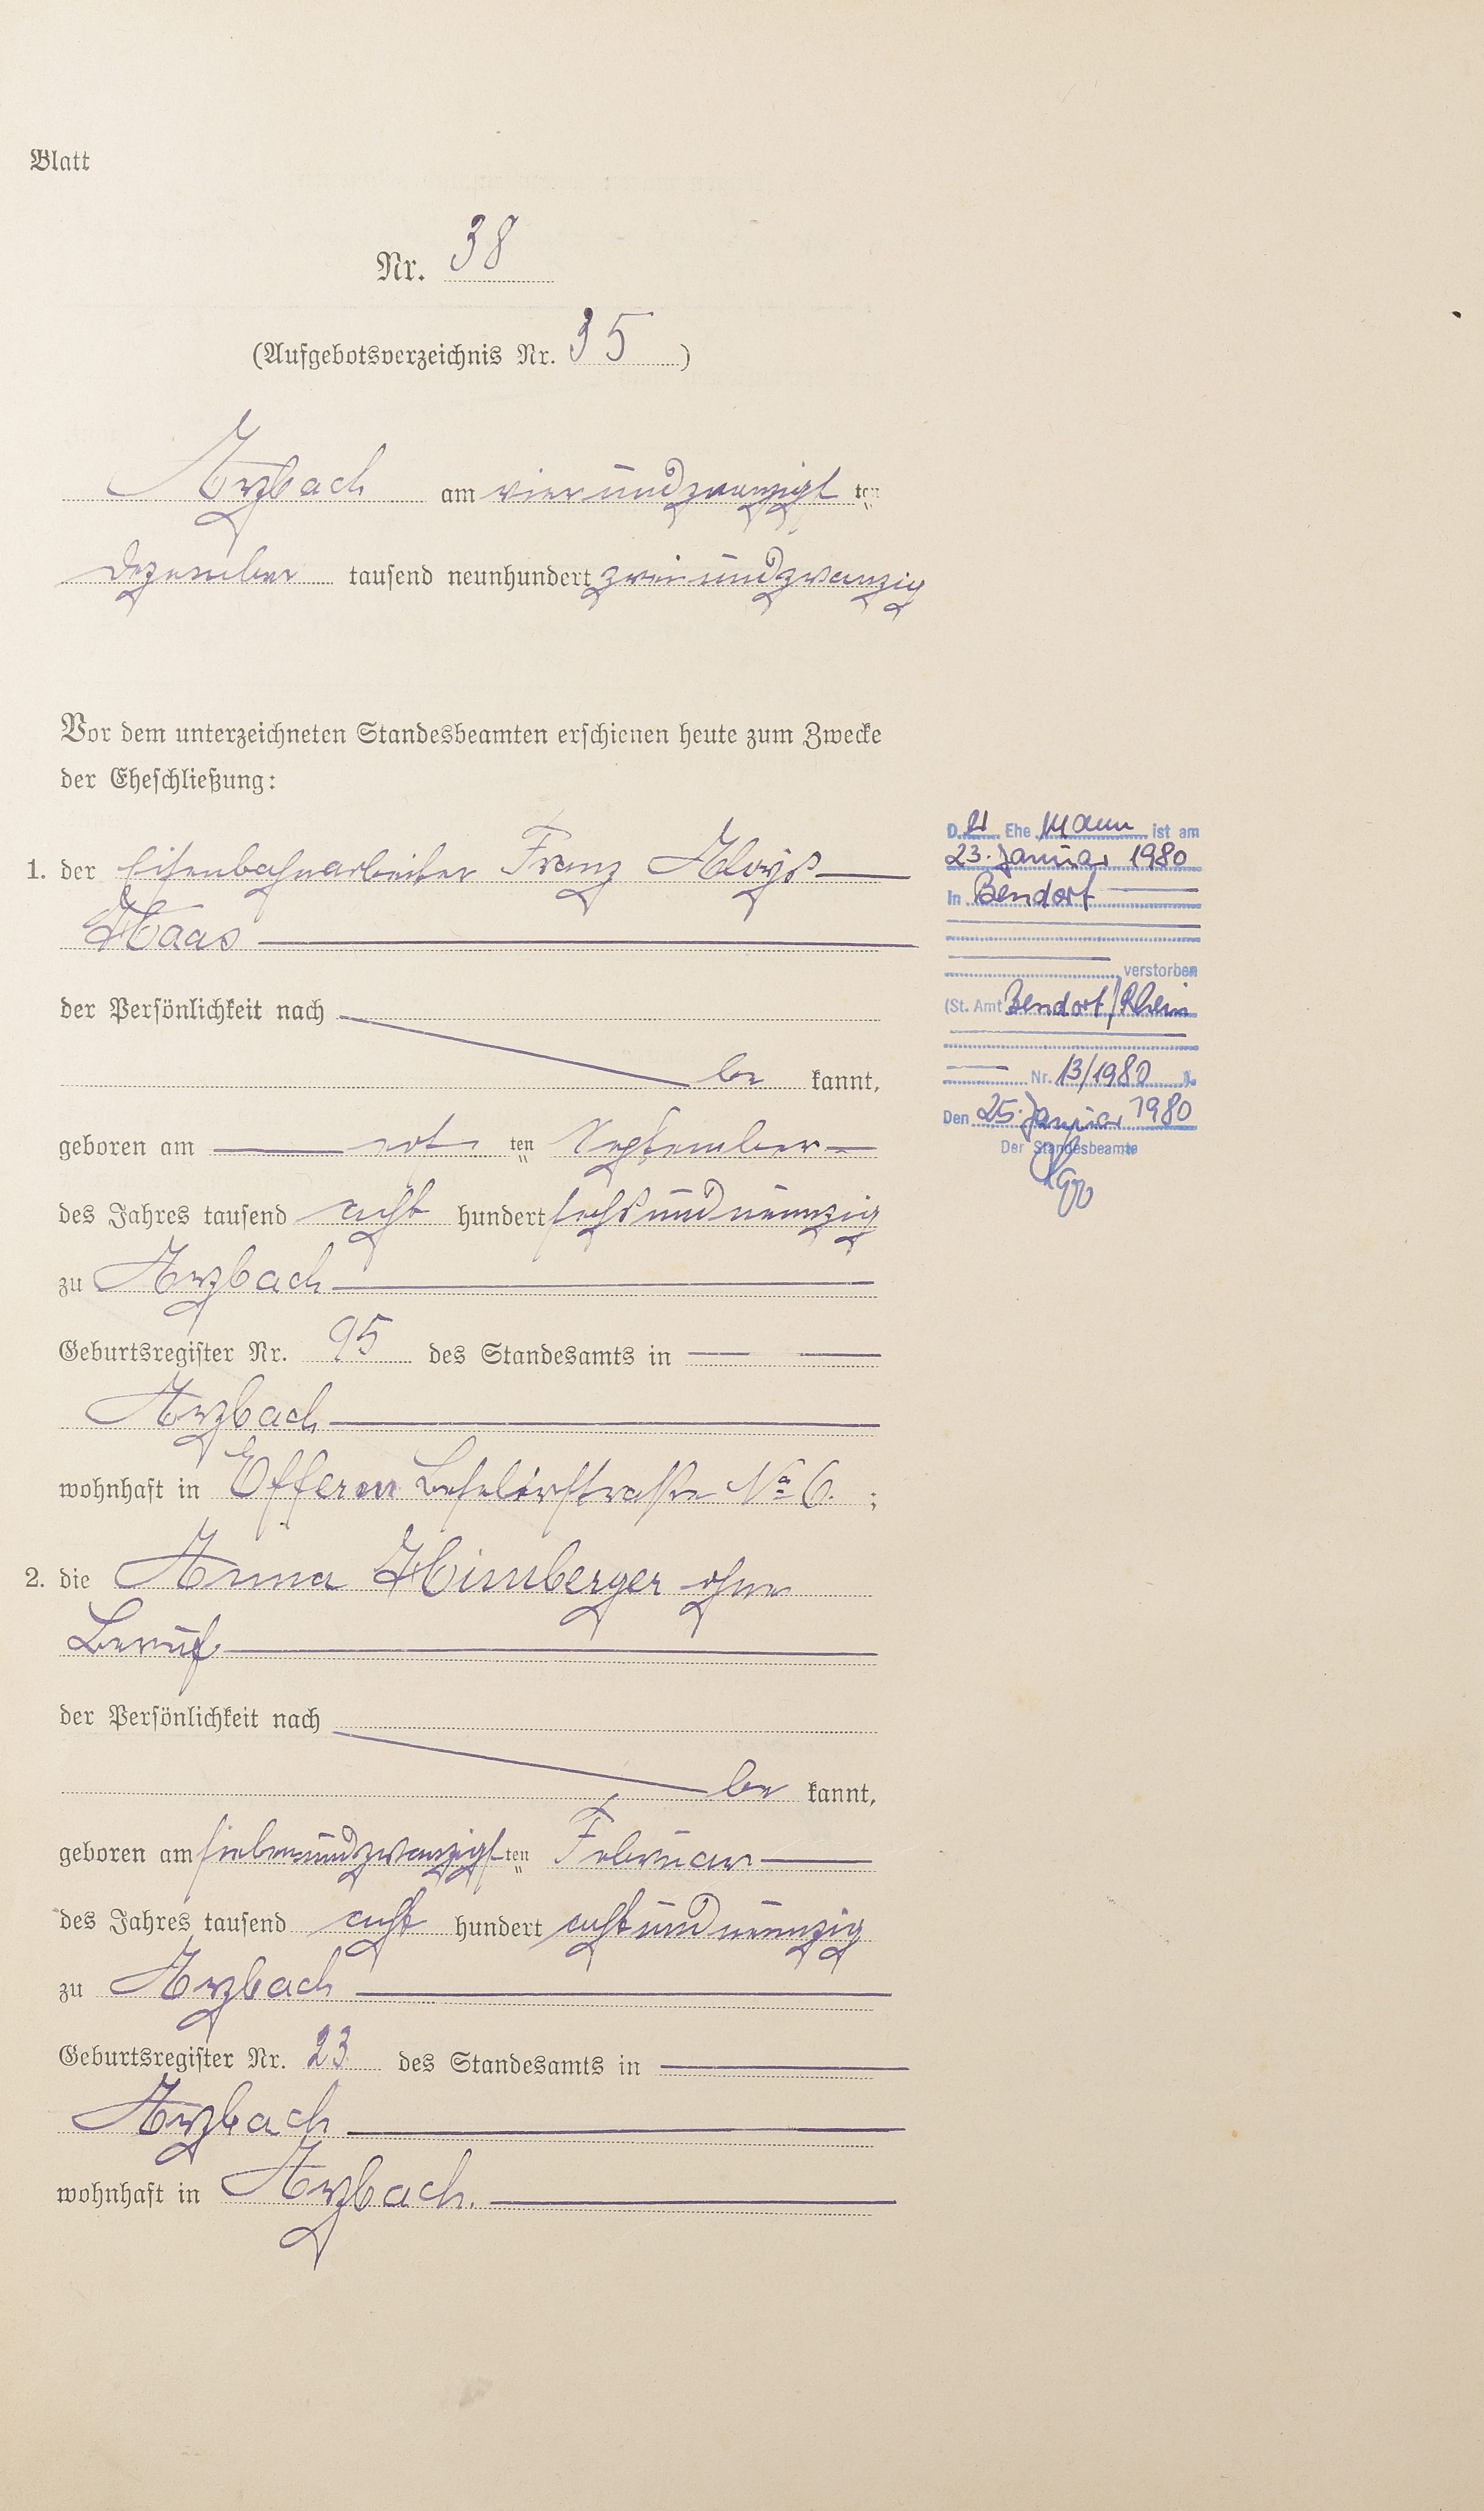 Blatt
Nr. 38
(Aufgebotsverzeichnis Nr. 35)
Arzbach am vierundzwanzigsten
Dezember tausend neunhundert zweiundzwanzig
Vor dem unterzeichneten Standesbeamten erschienen heute zum Zwecke
der Eheschließung:
1. der Eisenbahnarbeiter Franz Aloys
Haas
der Persönlichkeit nach
be kannt,
geboren am ten September
des Jahres tausend acht hundert sechsundneunzig
zu Arzbach
Geburtsregister Nr. 95 des Standesamts in
Arzbach
wohnhaft in Efferen No 6. ;
2. die Anna Himberger ohne
Beruf
der Persönlichkeit nach
be kannt,
geboren am siebenundzwanzigsten Februar
des Jahres tausend acht hundert achtundneunzig
zu Arzbach
Geburtsregister Nr. 23 des Standesamts in
Arzbach
wohnhaft in Arzbach.
D. er Ehe Mann ist am
23. Januar 1980
in Bendorf
verstorben
(St. Amt Bendorf/Rhein
Nr. 13/1980 ).
Den 25. Januar 1980
Der Standesbeamte